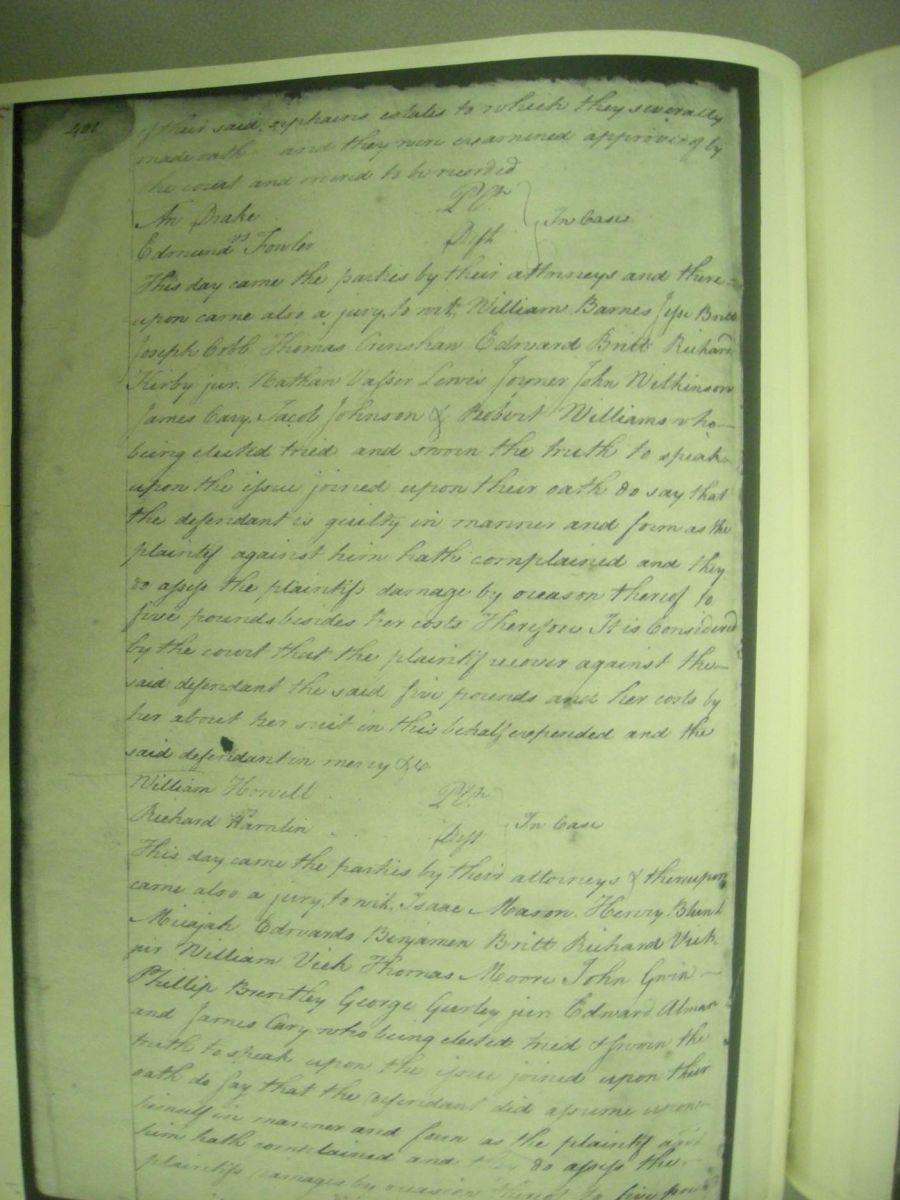 401
of their said orphans estates to which they severally
made oath and they were examined approved of by
the court and ordered to be recorded
An Drake Pltf
vs In Case
Edmund Fowler Deft
This day came the parties by their attorneys and there-
upon came also a jury, to wit, William Barnes Jesse Britt
Joseph Cobb Thomas Crenshaw Edward Britt Richard
Kirby jur. Nathan Vasser Lewis Joyner John Wilkinson
James Cary, Jacob Johnson & Robert Williams who—
being elected tried and sworn the truth to speak
upon the issue joined upon their oath do say that
the defendant is guilty in manner and form as the
plaintif against him hath complained and they
do assess the plaintifs damage by occasion thereof to
five pounds besides her costs Therefore It is Considered
by the court that the plaintif recover against the—
said defendant the said five pounds and her costs by
her about her suit in this behalf expended and the
said defendant in mercy &c
William Howell Pltf
vs In Case
Richard Hamlin Deft
This day came the parties by their attorneys & thereupon
came also a jury, to wit, Isaac Mason, Henry Blunt
Micajah Edwards Benjamin Britt Richard Vick
jur William Vick Thomas Moore John Gwin—
Phillip Brentley George Gurley jun Edward
and James Cary who being elected tried & sworn the
truth to speak upon the issue joined upon their
oath do say that the defendant did assume upon—
himself in manner and form as the plaintif
him hath complained and they do assess the—
plaintifs damages by occasion thereof to five